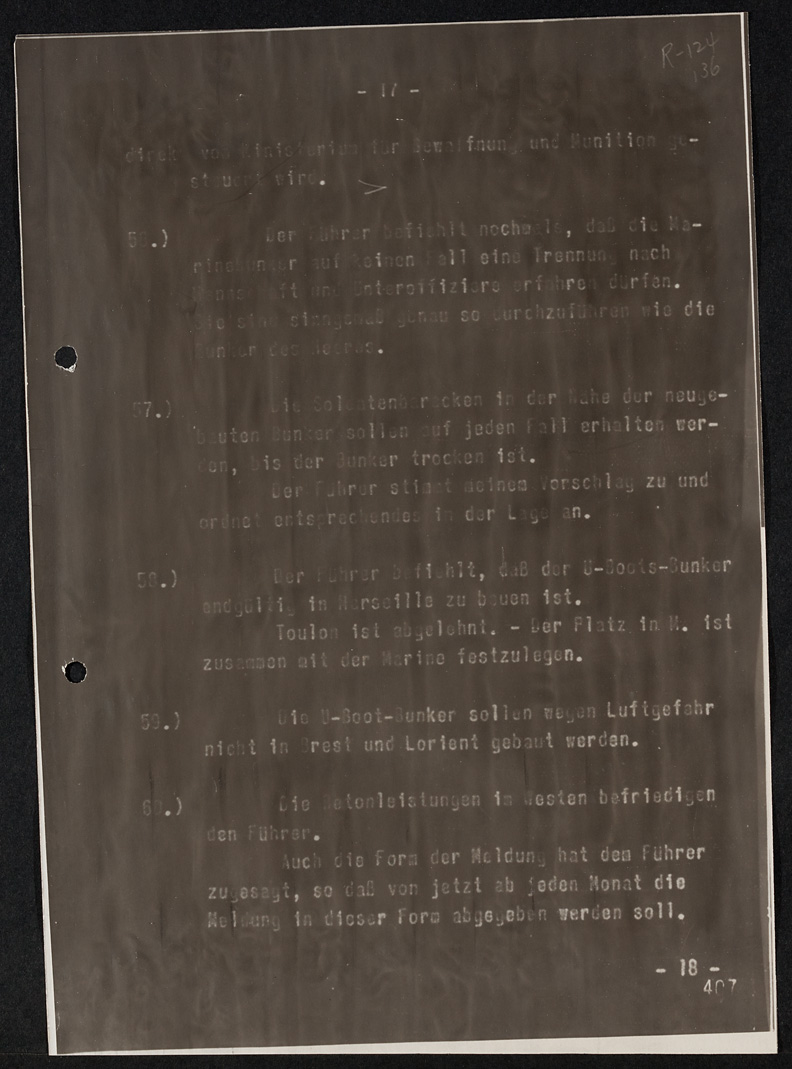 R-124
136
- 17 -
direkt vom Ministerium für Bewaffnung und Munition ge-
steuert wird.
56.) Der Führer befiehlt nochmals, daß die Ma-
rinebunker auf keinen Fall eine Trennung nach
Mannschaft und Unteroffiziere erfahren dürfen.
Sie sind sinngemäß genau so durchzuführen wie die
Bunker des Heeres.
57.) Die Soldatenbaracken in der Nähe der neuge-
bauten Bunker sollen auf jeden Fall erhalten wer-
den, bis der Bunker trocken ist.
Der Führer stimmt meinem Vorschlag zu und
ordnet entsprechendes in der Lage an.
58.) Der Führer befiehlt, daß der U-Boots-Bunker
endgültig in Marseille zu bauen ist.
Toulon ist abgelehnt. - Der Platz in M. ist
zusammen mit der Marine festzulegen.
59.) Die U-Boot-Bunker sollen wegen Luftgefahr
nicht in Brest und Lorient gebaut werden.
60.) Die Betonleistungen im Westen befriedigen
den Führer.
Auch die Form der Meldung hat dem Führer
zugesagt, so daß von jetzt ab jeden Monat die
Meldung in dieser Form abgegeben werden soll.
- 18 -
407